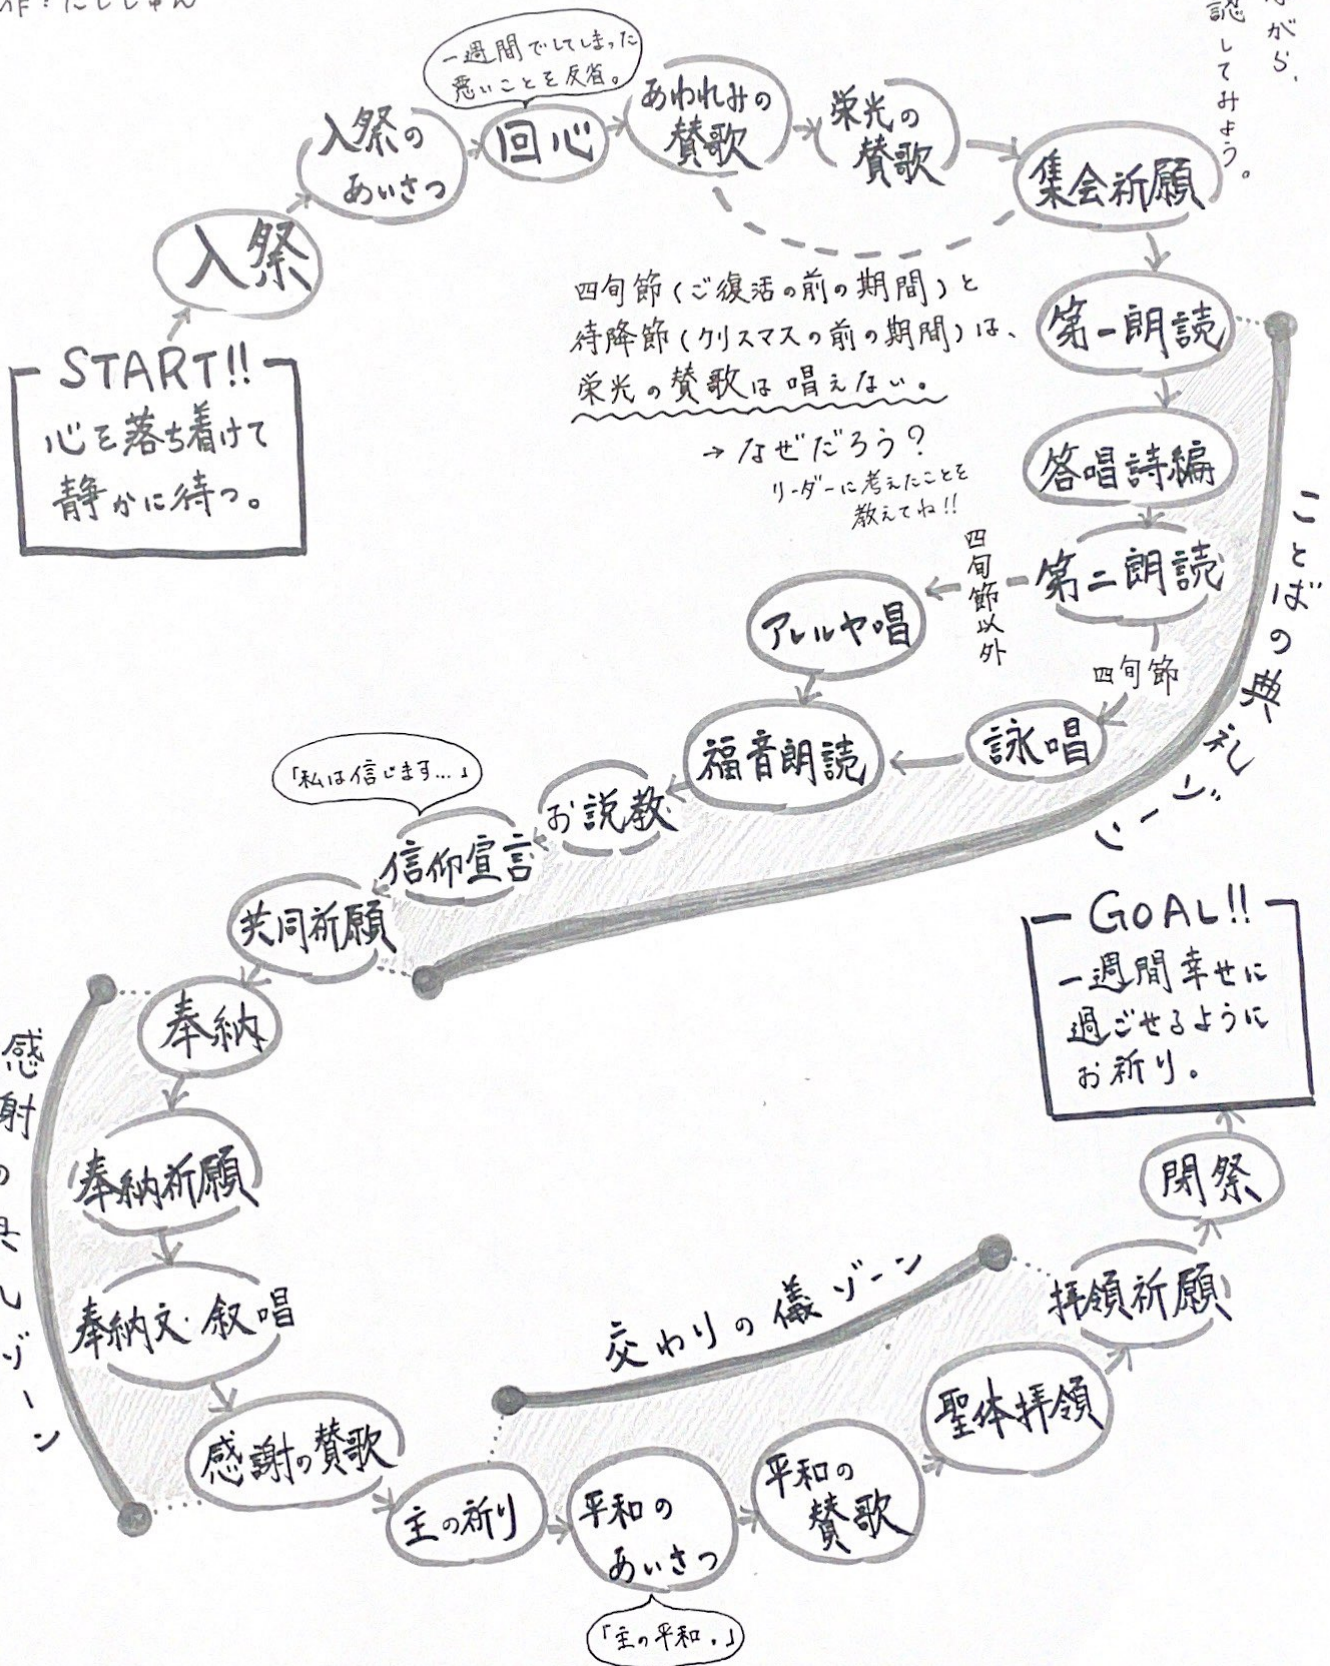 作：にしじゅん
がら、
認してみよう。
START!!
心を落ち着けて
静かに待つ。
入祭
入祭の
あいさつ
一週間でしてしまった
悪いことを反省。
回心
あわれみの
賛歌
栄光の
賛歌
集会祈願
四旬節（ご復活の前の期間）と
待降節（クリスマスの前の期間）は、
栄光の賛歌は唱えない。
→なぜだろう？
リーダーに考えたことを
教えてね!!
第一朗読
答唱詩編
第二朗読
四旬節以外
アレルヤ唱
四旬節
詠唱
福音朗読
お説教
「私は信じます…」
信仰宣言
共同祈願
ことばの典礼ゾーン
奉納
奉納祈願
奉納文・叙唱
感謝の賛歌
感謝の典礼ゾーン
主の祈り
平和の
あいさつ
「主の平和。」
平和の
賛歌
聖体拝領
拝領祈願
交わりの儀ゾーン
閉祭
GOAL!!
一週間幸せに
過ごせるように
お祈り。